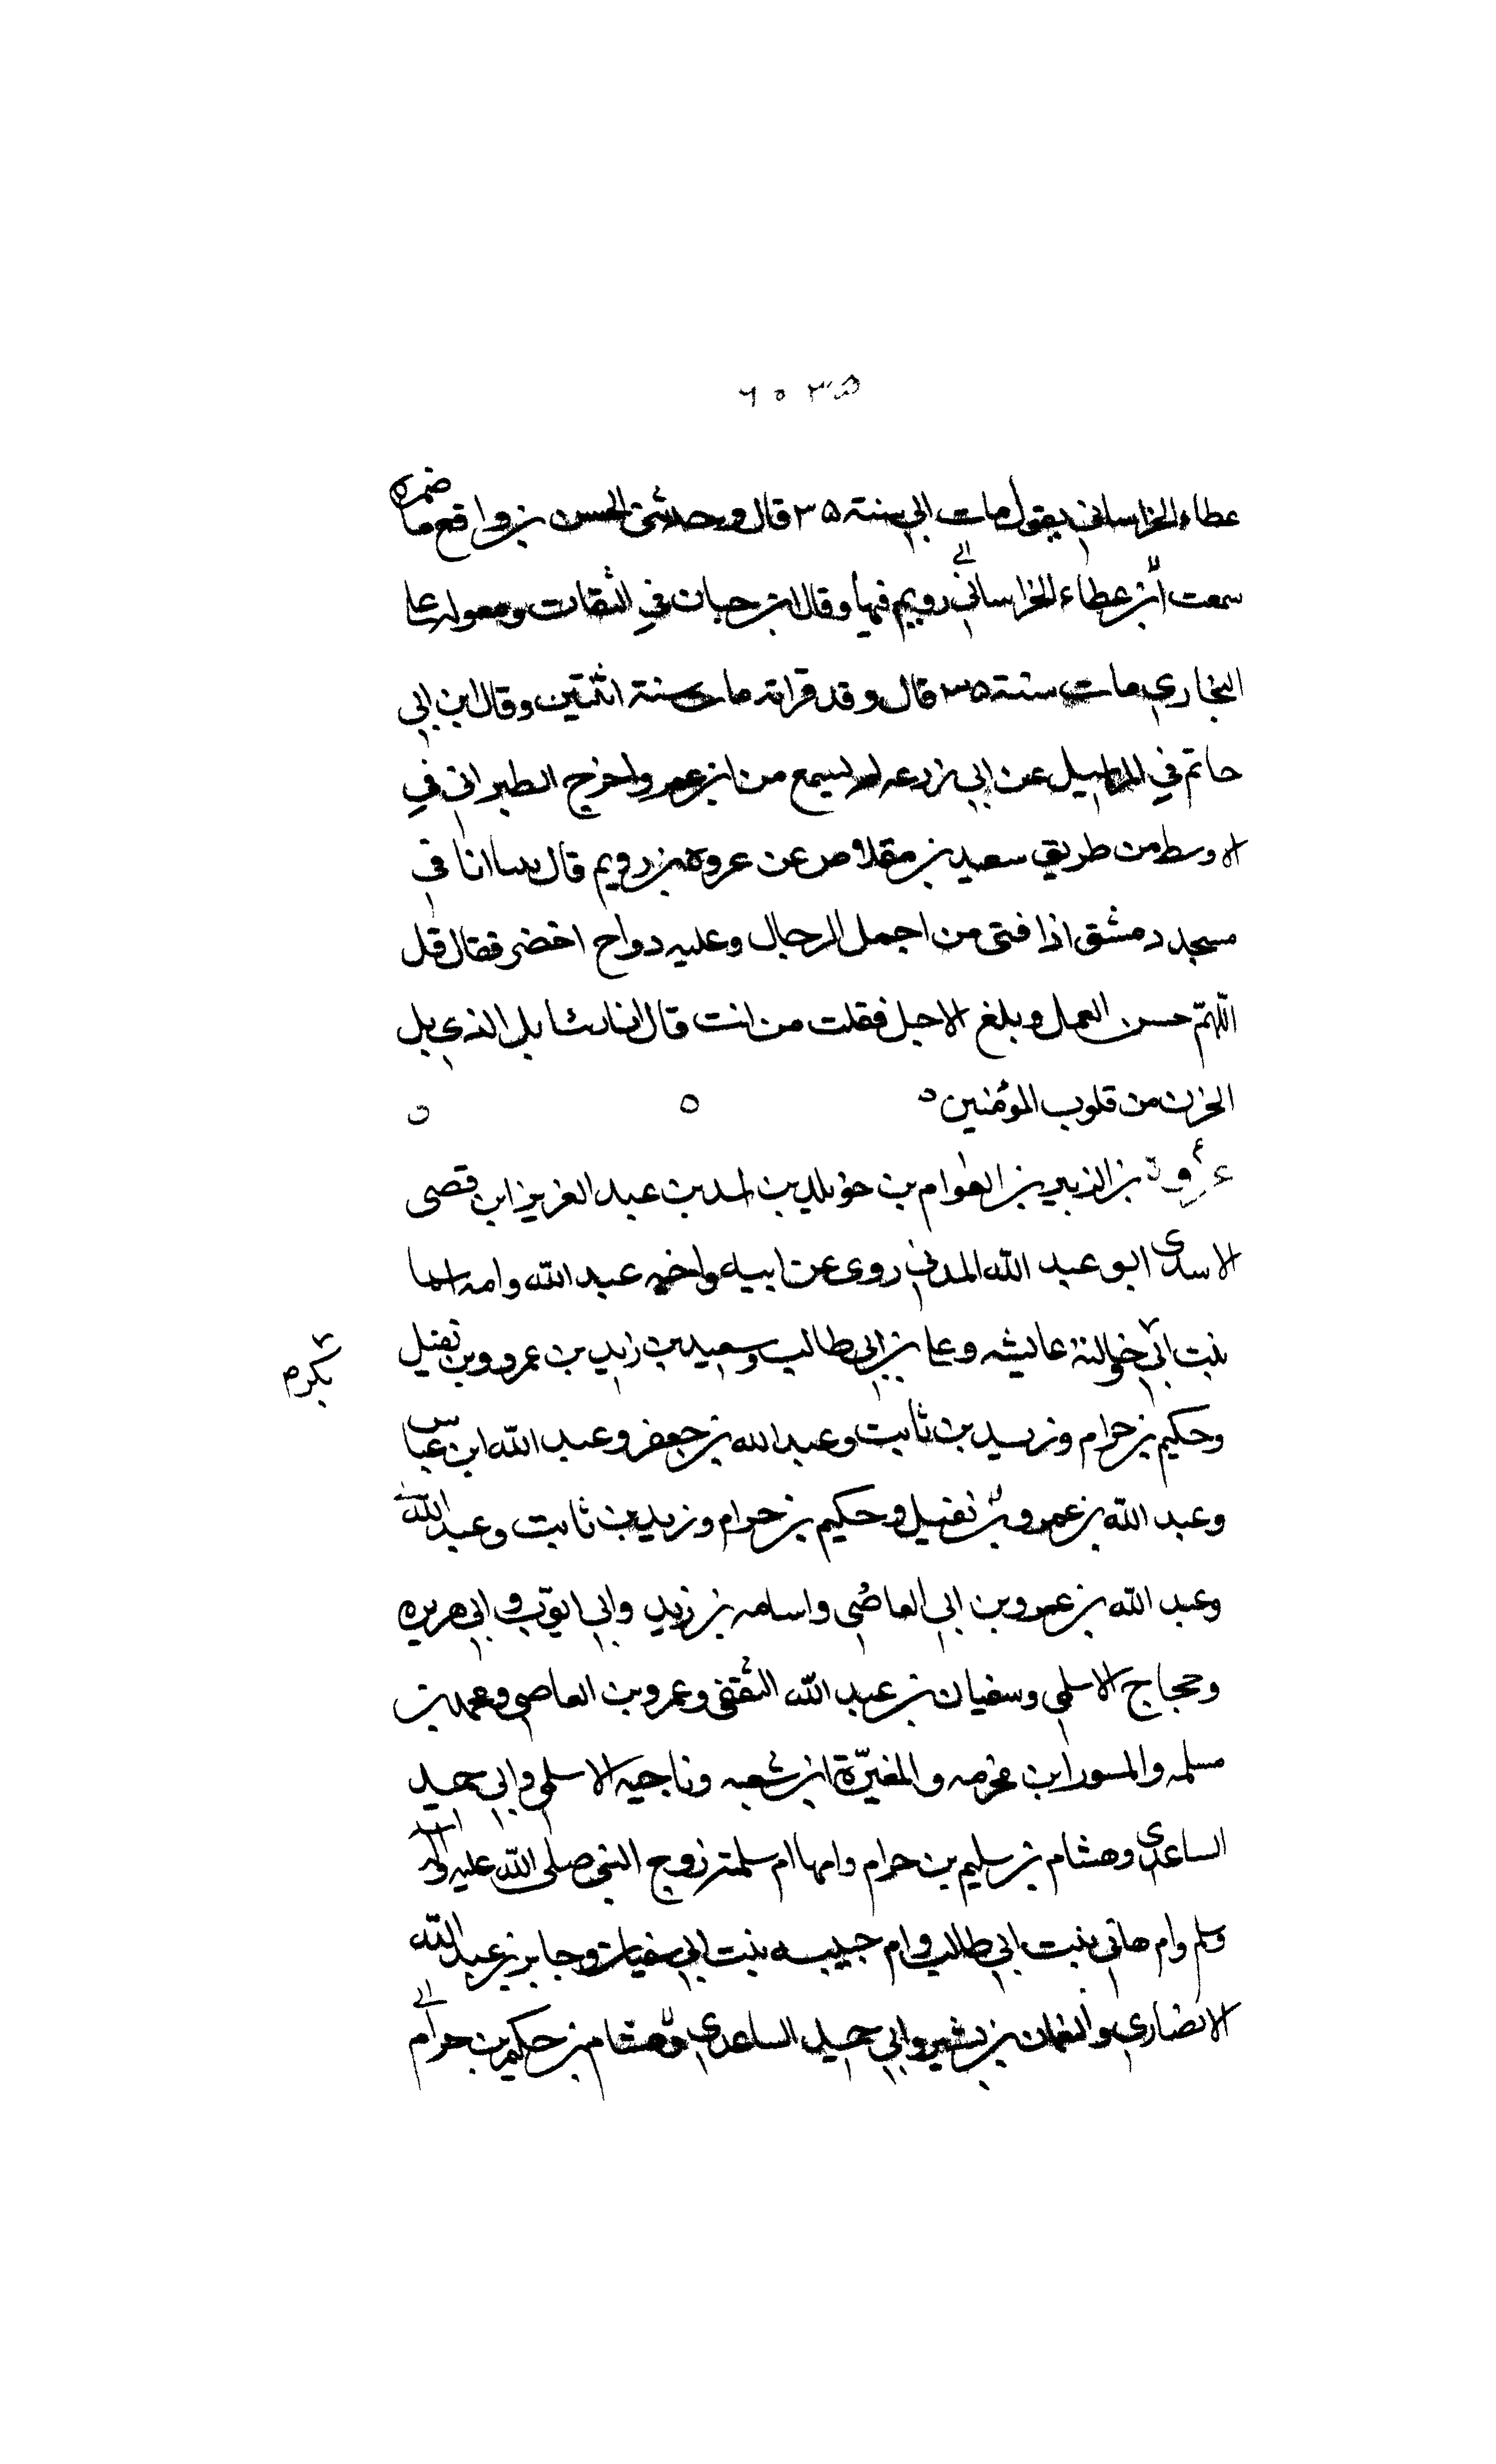 عطاء الخراساني يقول مات ابي سنة ٣٥ قال وحدثني الحسن بن واقع ما ضمره
سمعت ابن عطاء الخراساني رويم فيها وقال ابن حبان في الثقات
البخاري مات سنة ٣٥ قال وقد قراته مات سنة اثنتين وقال ابن ابي
حاتم في المراسيل عن ابي زرعه لم يسمع من ابن عمر واخرج الطبراني في
الاوسط من طريق سعيد بن مقلاص عن عروه بن رويم قال بينا انا في
مسجد دمشق اذا فتى من اجمل الرجال وعليه دواح اخضر فقال قل
اللهم حسن العمل وبلغ الاجل فقلت من انت قال انا الذي يسل
الحزن من قلوب المؤمنين
عروة بن الزبير بن العوام بن خويلد بن اسد بن عبد العزيز ابن قصى
الاسدى ابو عبد الله المدني روى عن ابيه واخيه عبد الله وامه اسما
بنت ابي وخالته عايشه وعلي بن ابي طالب وسعيد بن زيد بن عمرو بن نفيل
بكر م
وحكيم بن حرام وزيد بن ثابت وعبد الله بن جعفر وعبد الله ابن عباس
وعبد الله بن عمرو بن نفيل وحكيم بن حرام وزيد بن ثابت وعبد الله
وعبد الله بن عمرو بن ابي العاضي واسامه بن زيد وابي ايوب وابي هريره
وحجاج الاسلمي وسفيان بن عبد الله الثقفي وعمرو بن العاصي ومحمد بن
مسلمه والمسور ابن مخرمه والمغيرة ابن شعبه وناجيه الاسلمي وابي حميد
الساعدى وهشام بن سليم بن حرام وامها ام سلمة زوج النبي صلى الله عليه وآله
وسلم وام هاني بنت ابي طالب وام حبيبه بنت ابي سفيان وجابر بن عبد الله
الانصاري والنعمان بن بشير وابي حميد الساعدي وهشام بن حكيم بن حرام